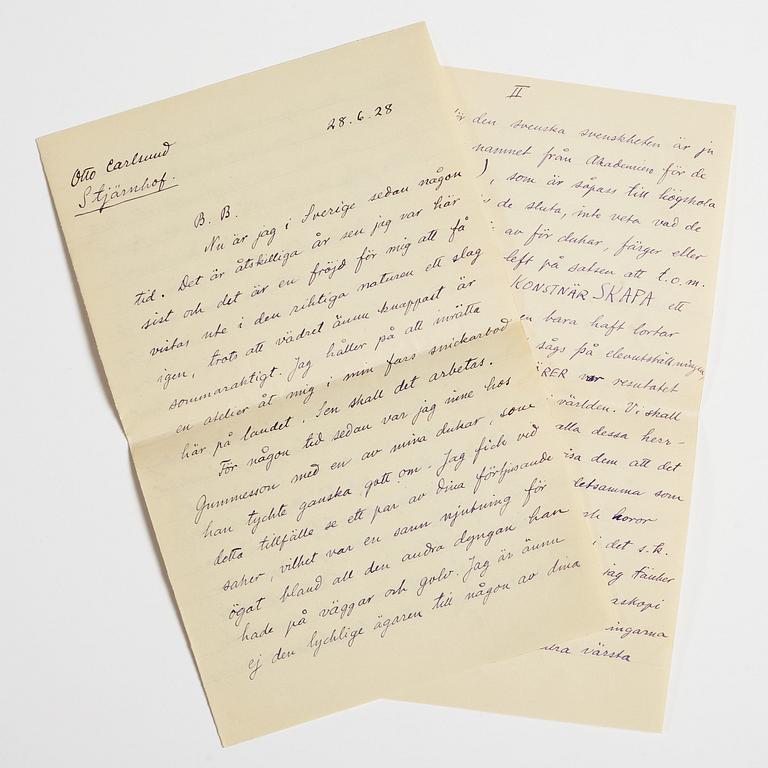 28.6.28
Otto Carlsund
Stjärnhof.
B. B.
Nu är jag i Sverige sedan någon
tid. Det är åtskilliga år sen jag var här
sist och det är en fröjd för mig att få
vistas ute i den riktiga naturen ett slag
igen, trots att vädret ännu knappast är
sommaraktigt. Jag håller på att inrätta
en atelier åt mig i min fars snickarbod
här på landet. Sen skall det arbetas.
För någon tid sedan var jag inne hos
Gummesson med en av mina dukar, som
han tyckte ganska gott om. Jag fick vid
detta tillfälle se ett par av dina förtjusande
saker, vilket var en sann njutning för
ögat bland all den andra dyngan han
hade på väggar och golv. Jag är ännu
ej den lycklige ägaren till någon av dina
II
den svenska svenskheten är ju
namnet från Akademin för de
), som är såpass till högskola
de sluta, inte veta vad de
av för dukar, färger eller
på satsen att t.o.m.
KONSTNÄR SKAPA ett
en bara haft lortar
sågs på elevutställningen,
var resultatet
i världen. Vi skall
alla dessa herr-
dem att det
som
horor
i det s.k.
jag tänker
ingarna
värsta